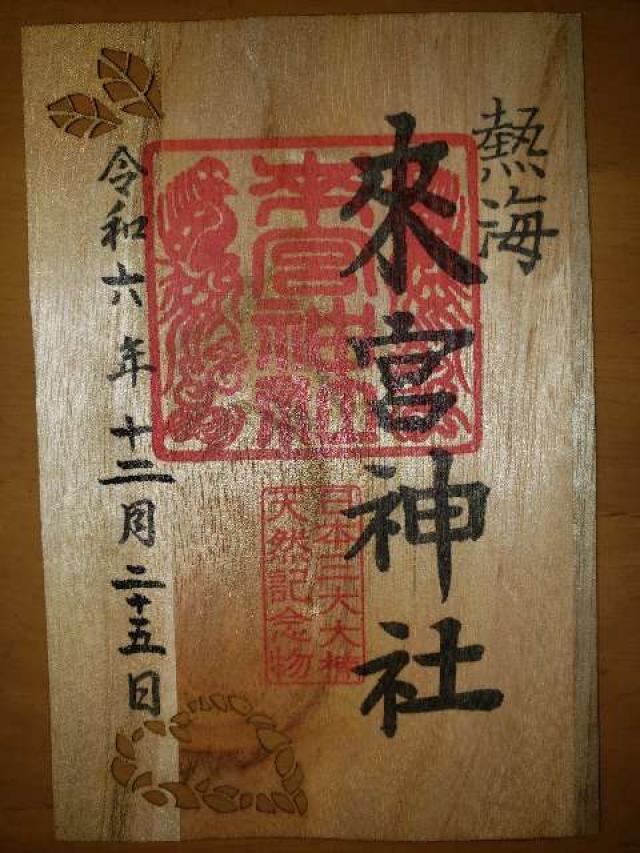 熱海
來宮神社
来宮神社
日本三大大楠
天然記念物
令和六年十二月二十五日